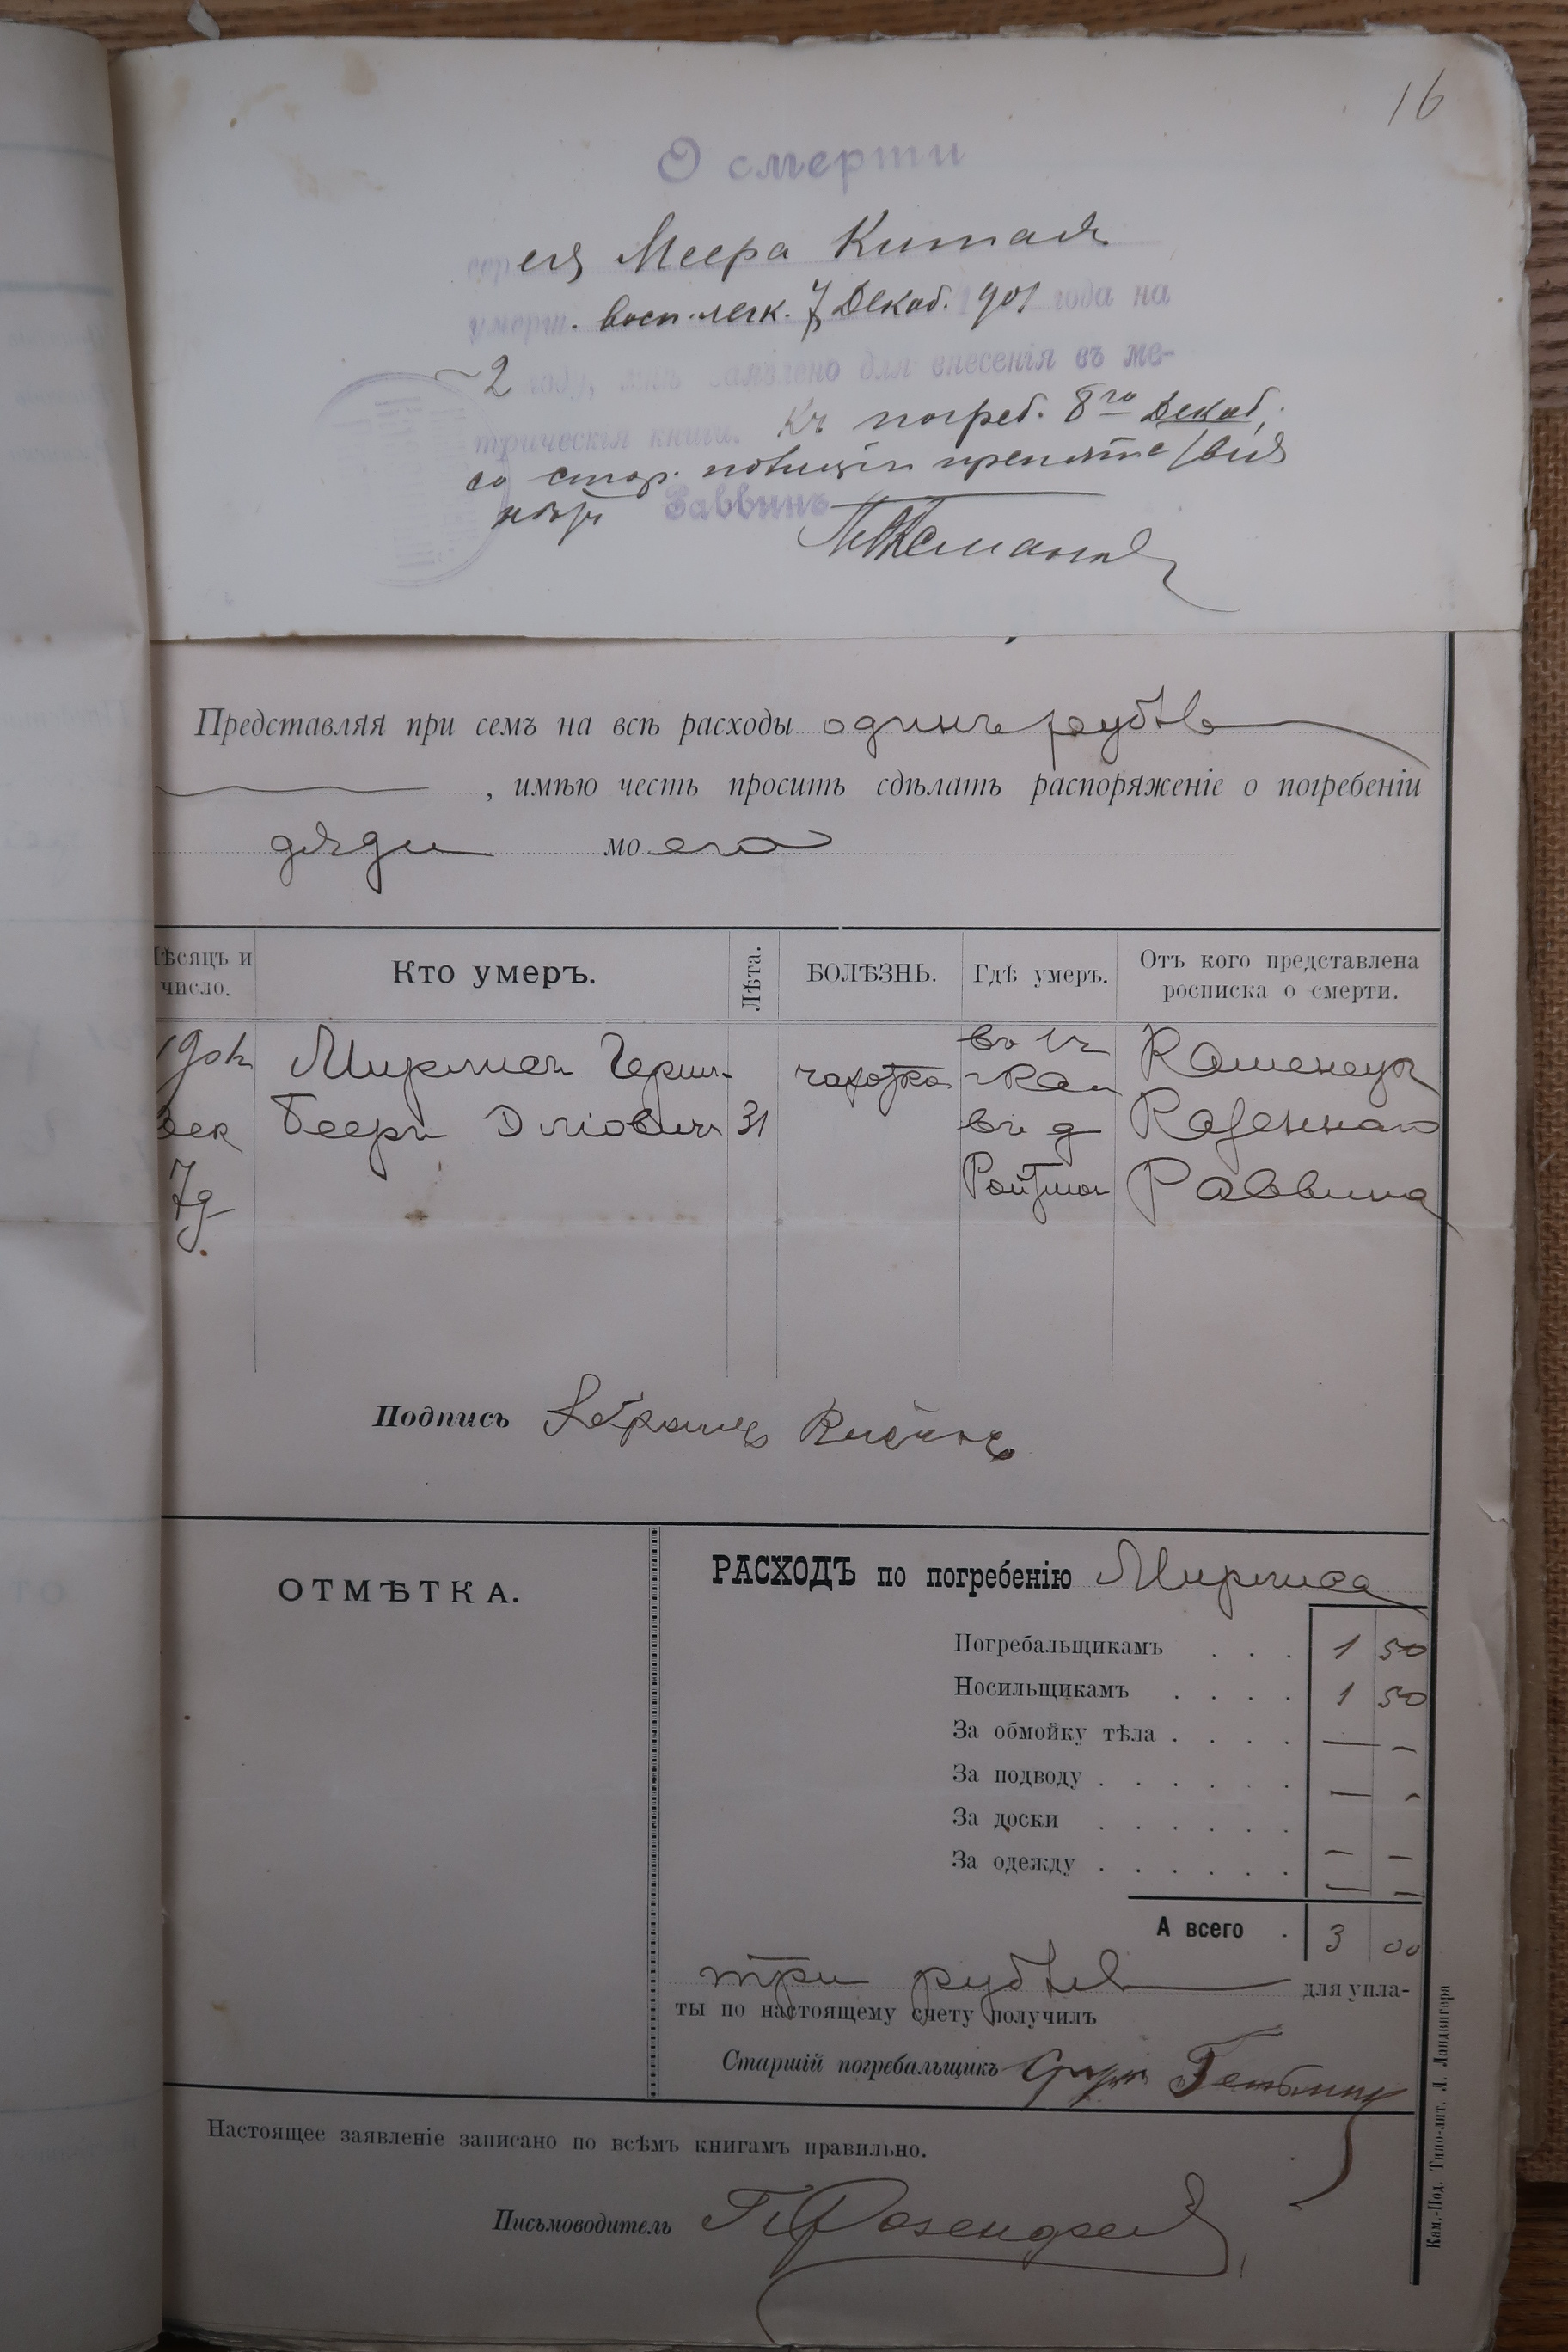 16
О смерти
Меера Китая
умерш. восп. легк. 7 Декаб. 901 года на
2 году, мнѣ заявлено для внесенія въ ме-
трическія книги. Къ погреб. 8го Декаб.
со стор. полиціи препятствія
нѣтъ Раввинъ
Представляя при семъ на всѣ расходы одинъ рубль
, имѣю честь просить сдѣлать распоряженіе о погребеніи
дяди моего
Мѣсяцъ и число. Кто умеръ. Лѣта. БОЛѢЗНЬ. Гдѣ умеръ. Отъ кого представлена росписка о смерти.
Герш- чахотка Каменецк
дек Беръ 31 въ д Казеннаго
7д Ройтман Раввина
Подпись
ОТМѢТКА.
РАСХОДЪ по погребенію
Погребальщикамъ . . . 1 50
Носильщикамъ . . . . 1 50
За обмойку тѣла . . . . — —
За подводу . . . . . . — —
За доски . . . . . . — —
За одежду . . . . . . — —
А всего . 3 00
три рубль для упла-
ты по настоящему счету получилъ
Старшій погребальщикъ
Настоящее заявленіе записано по всѣмъ книгамъ правильно.
Письмоводитель
Кам.-Под. Типо-лит. Л. Ландвигера